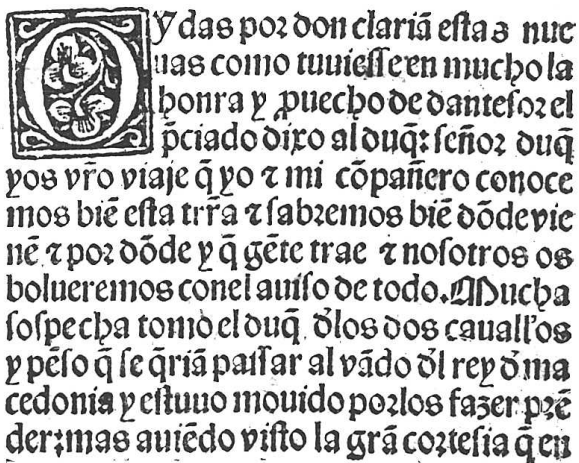 Oydas por don clariā estas nue
uas como tuuiesse en mucho la
honra y ꝓuecho de dantesor el
p̄ciado dixo al duq̄: señor duq̄
yos vr̄o viaje q̄ yo ⁊ mi cōpañero conoce
mos biē esta trr̄a ⁊ sabremos biē dōde vie
nē ⁊ por dōde y q̄ gēte trae ⁊ nosotros os
bolueremos conel auiso de todo. Mucha
sospecha tomo el duq̄ d̄los dos caualĺos
y pēso q̄ se q̄riā passar al vādo d̄l rey d̄ ma
cedonia y estuuo mouido por los fazer prē
der: mas auiēdo visto la grā cortesia q̄ en